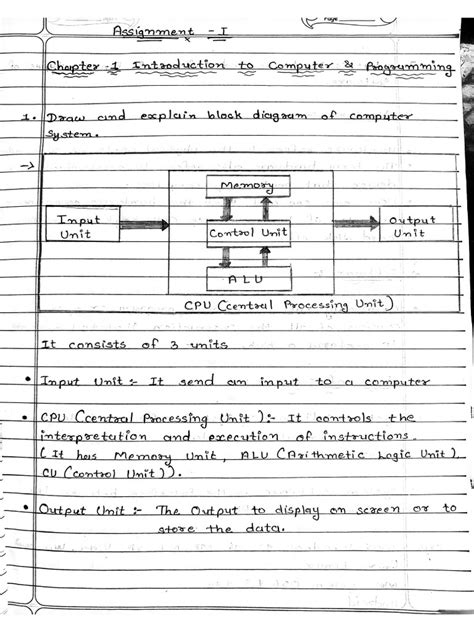 Page
Assignment - I
Chapter-1 Introduction to Computer & Programming
1. Draw and explain block diagram of computer
System.
→
Memory
Input
Unit
Control Unit
Output
Unit
ALU
CPU (Central Processing Unit)
It consists of 3 units
• Input Unit :- It send an input to a computer
• CPU (Central Processing Unit) :- It controls the
interpretation and execution of instructions.
(It has Memory Unit, ALU (Arithmetic Logic Unit),
CU (Control Unit)).
• Output Unit :- The Output to display on screen or to
store the data.